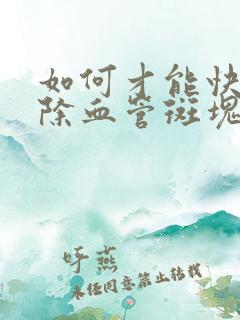 如何才能快
除血管斑块
呀燕
未经同意禁止转载